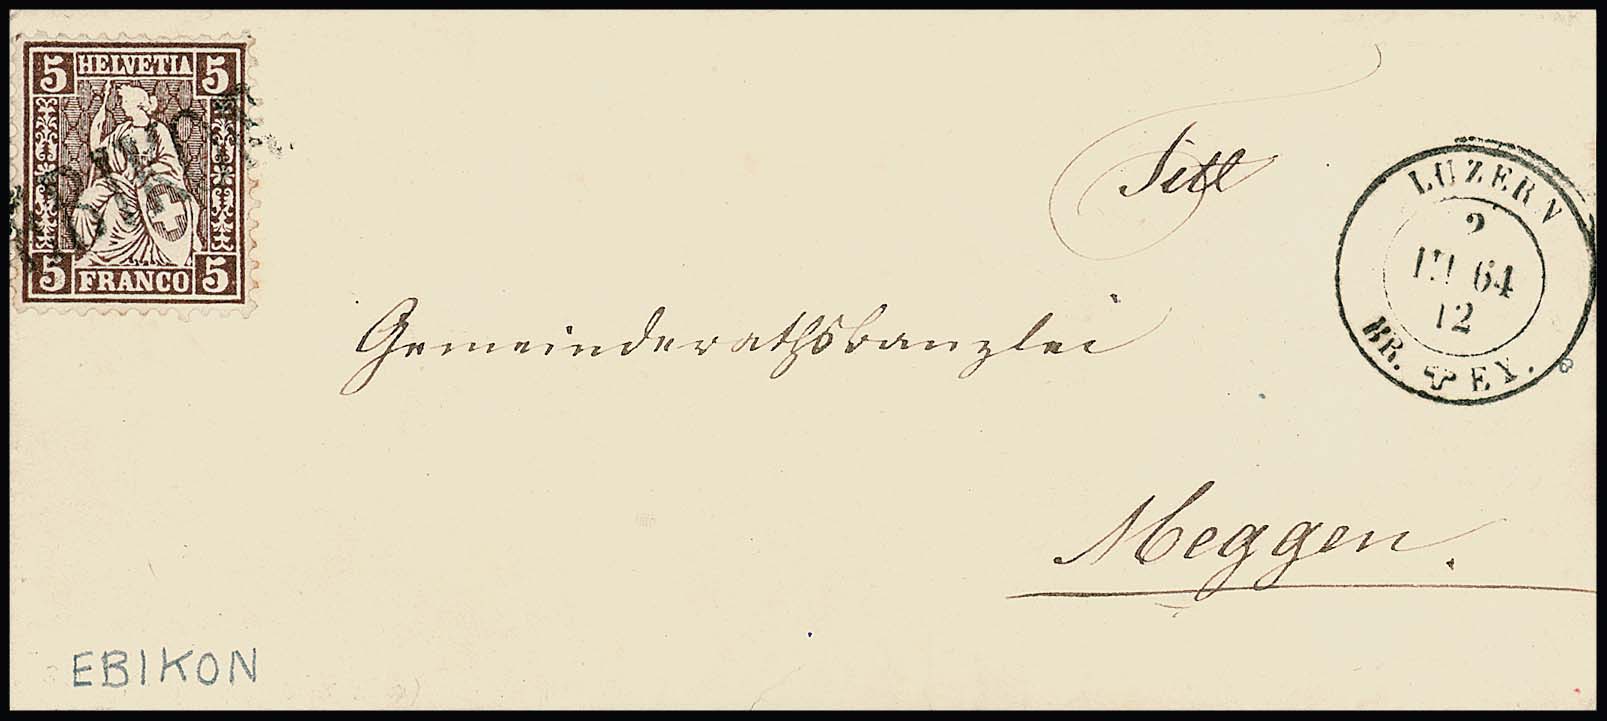 5 HELVETIA 5
5 FRANCO 5
Titl
LUZERN
2
III 64
12
BR. EX.
Gemeinderathskanzlei
Meggen.
EBIKON